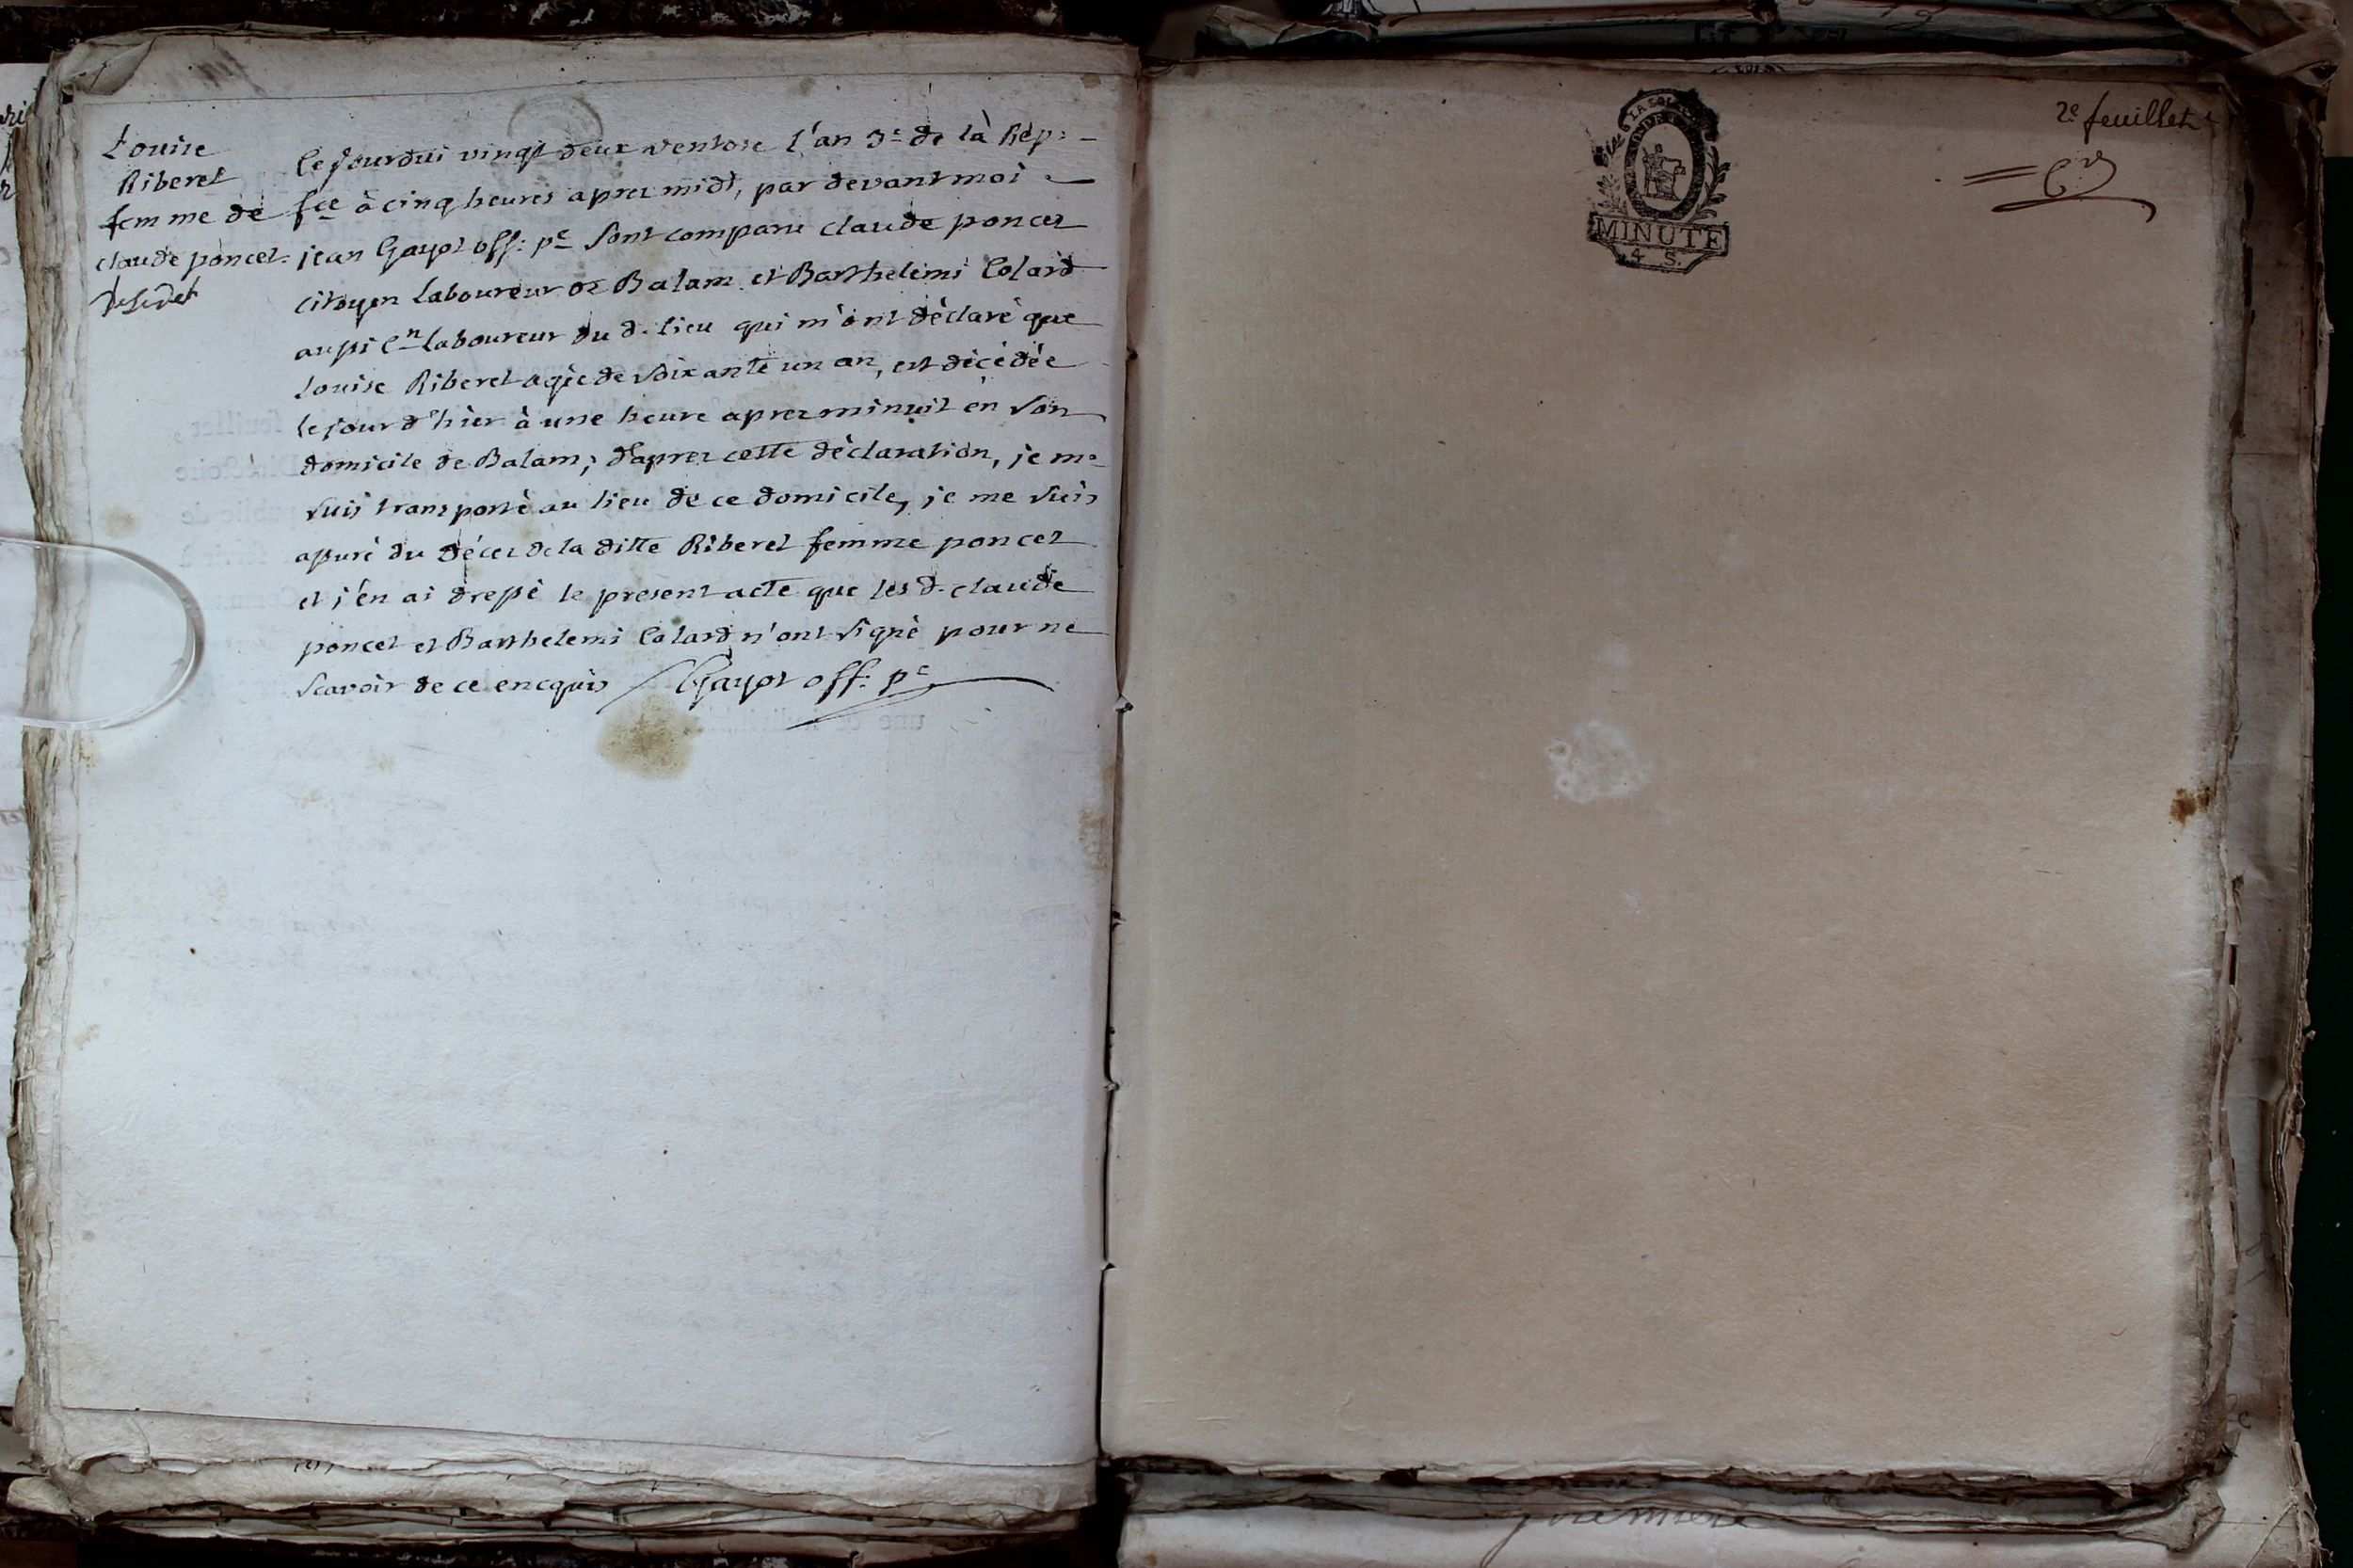 Louise
Riberet
femme de
claude poncet.
Cejourdui vingt deux ventose l'an 3e de là Rép:
fce à cinq heures aprez midi, par devant moi
jean Gayot off: pc sont comparu claude poncet
citoyen Laboureur de Balam et Barthelemi Colard
aussi Cn Laboureur du d. lieu qui m'ont déclaré que
Louise Riberet agée de soixante un an, est décédée
le jour d'hier à une heure aprez minuit en son
domicile de Balam; d'aprez cette déclaration, je me
suis transporté au lieu de ce domicile, je me suis
assuré du décez de la ditte Riberet femme poncet
et j'en ai dressé le present acte que les d. claude
poncet et Barthelemi Colard n'ont signé pour ne
scavoir de ce encquis Gayot off: pc
2e feuillet
MINUTE
4 S.